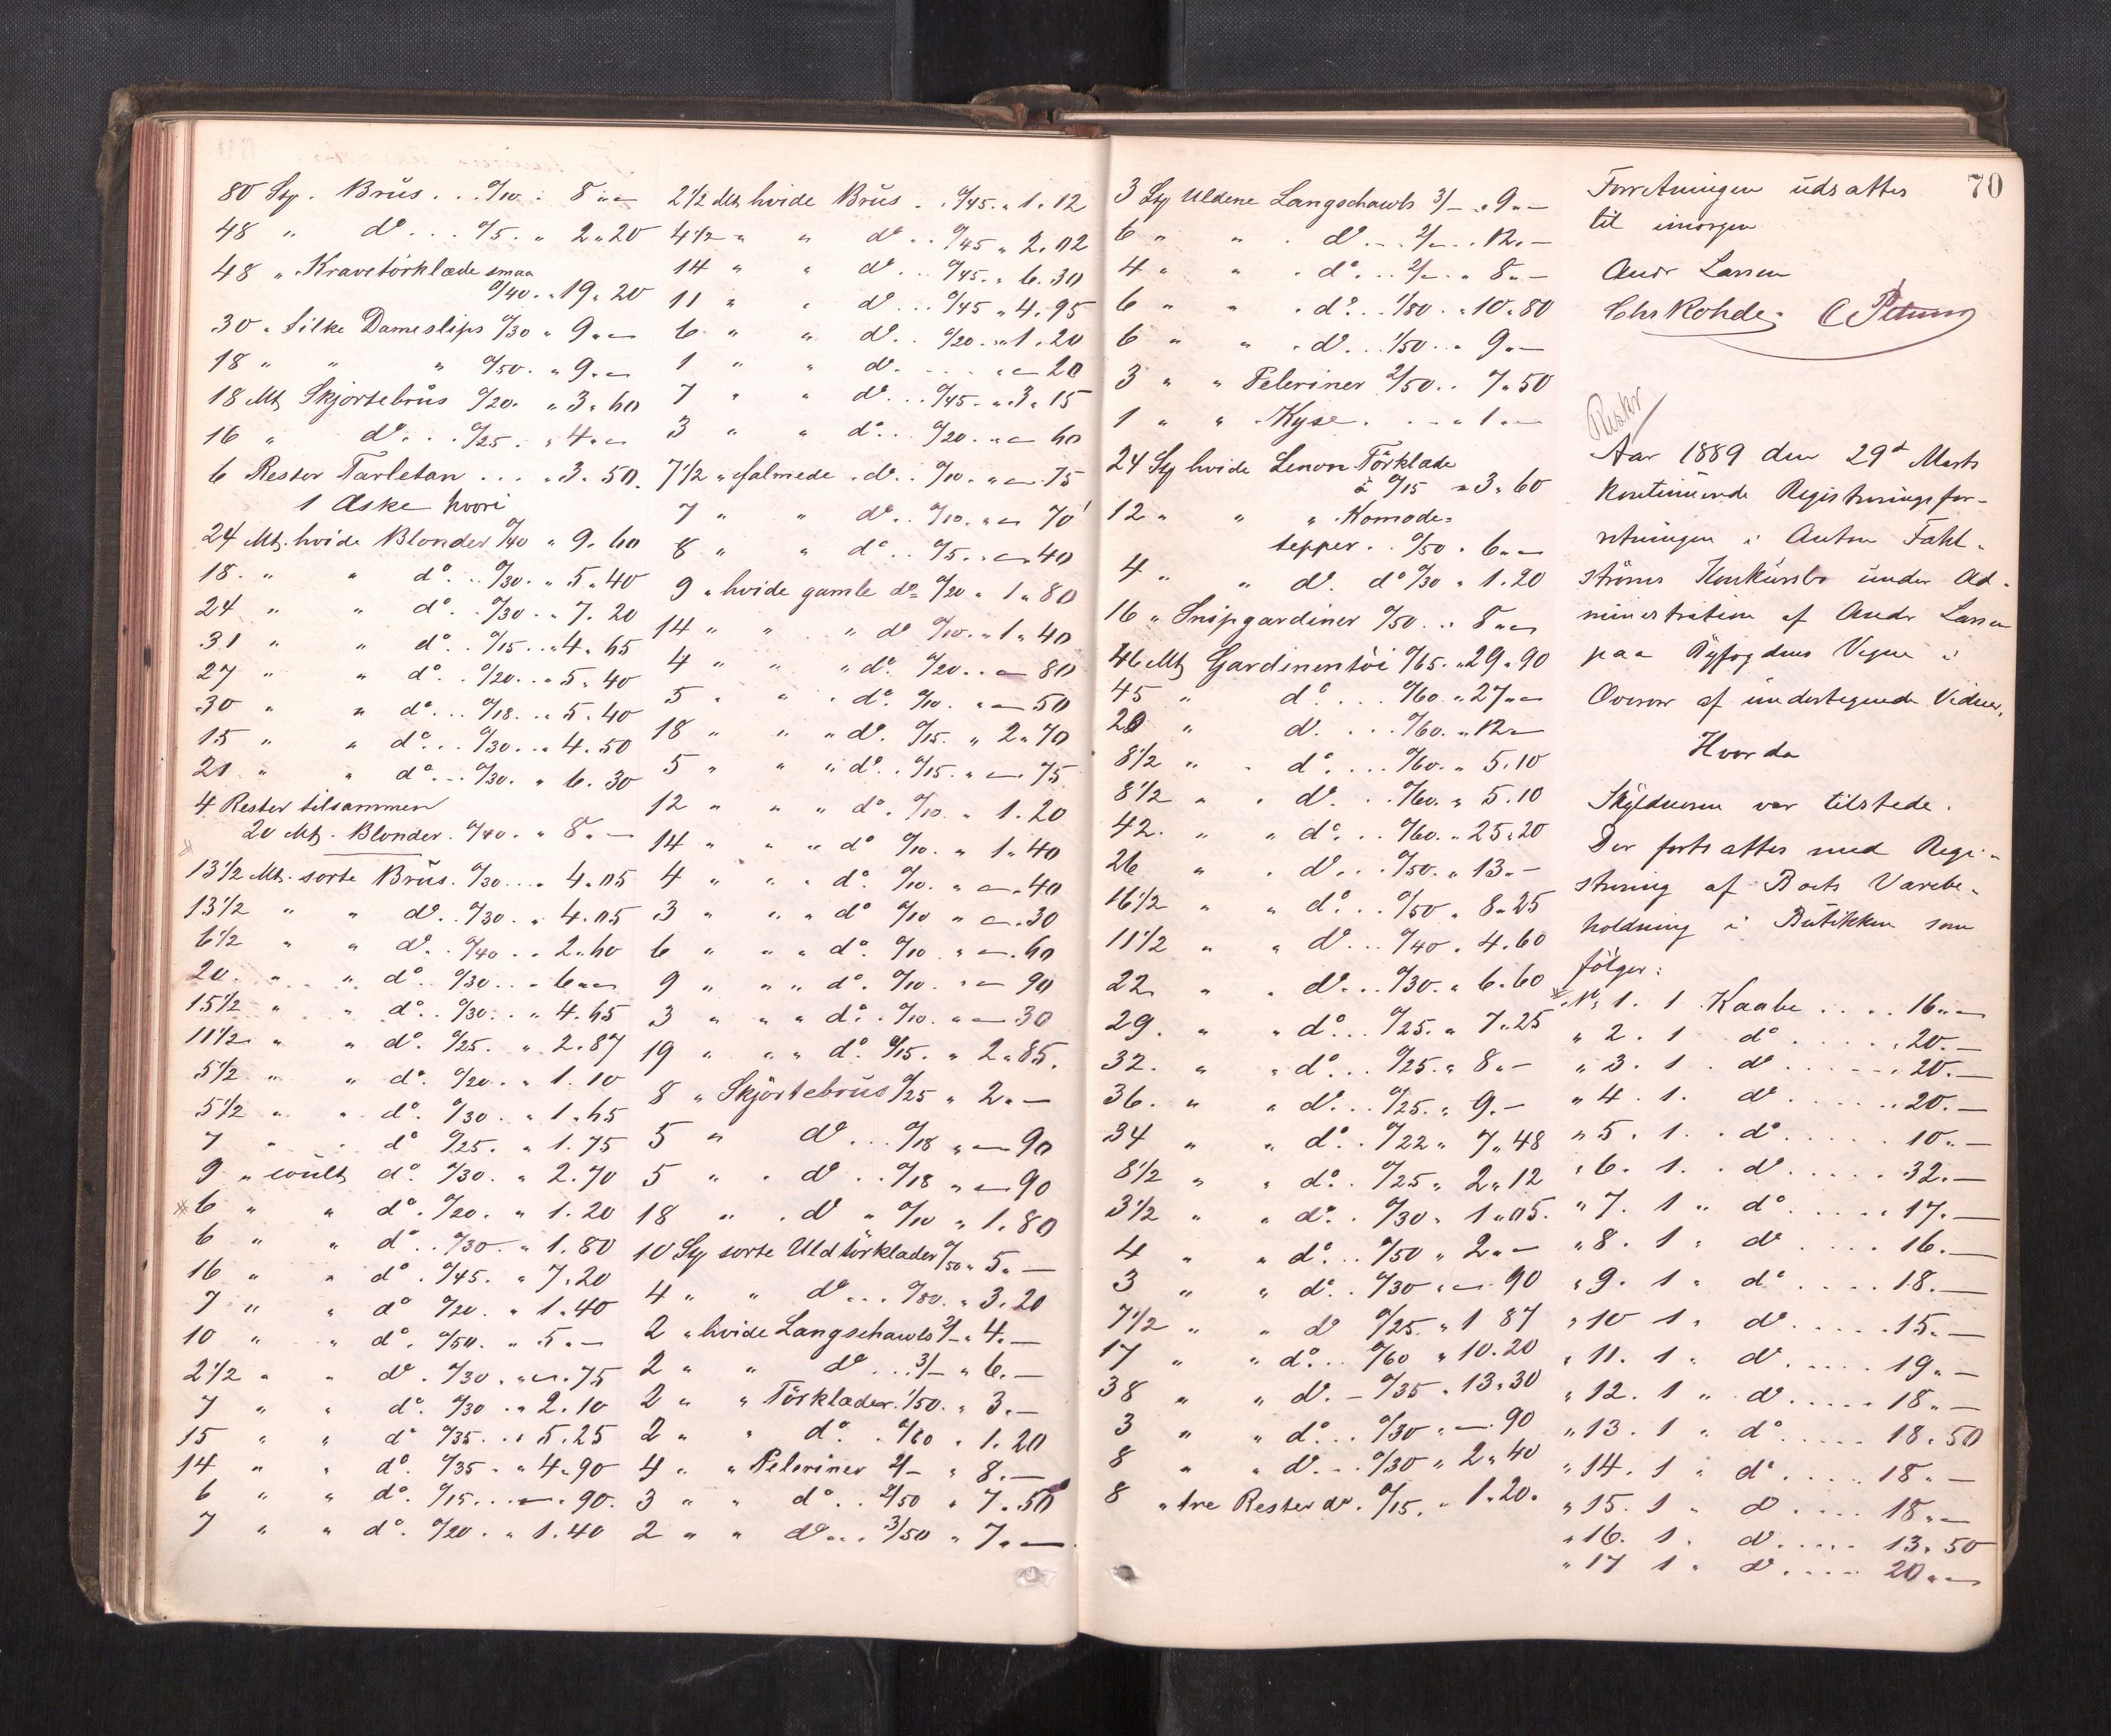 80 Stg. Brüs . . 0/10 . 8 " —
48 " do . . . 0/5 . " 2 " 20
48 " Kravetörklæde smaa
0/40 . " 19 " 20
30 " Silke Dameslips 0/30 " 9 " —
18 " " " 0/50 . " 9 " —
18 Mt Skjortebrüs 0/20 . " 3 " 60
16 " do . . . 0/25 . " 4 " —
6 Rester Tarletan . . . " 3 . 50 .
1 Æske hvori
24 Mt. hvide Blonder 0/40 " 9 . 60
18 . " " do . . 0/30 . " 5 " 40
24 " " do . . 0/30 . " 7 . 20
31 " " do . . 0/15 . . " 4 . 65
27 " " do . . 0/20 . . " 5 . 40
30 " " do . . . 0/18 . . " 5 . 40
15 " " do . . . 0/30 . . " 4 . 50
21 " " do . . . 0/30 . " 6 . 30
4 Rester tilsammen
20 Mt. Blonder . 0/40 . " 8 . —
13 1/2 Mt. sorte Brüs . 0/30 . . . " 4 . 05
13 1/2 " " do . . 0/30 . " 4 . 05
6 1/2 " " do . . 0/40 . . " 2 . 60
20 . " " do . 0/30 . . " 6 " —
15 1/2 " " do . . 0/30 . . " 4 . 65
11 1/2 " " do . 0/25 . " 2 . 87
5 1/2 " " do . 0/20 . " 1 . 10
5 1/2 " " do . 0/30 . " 1 . 65
7 " " do 0/25 . " 1 . 75
9 " coült do . 0/30 . " 2 . 70
6 " " do . 0/20 . " 1 . 20
6 " " do . . 0/30 . " 1 . 80
16 " " do . 0/45 . " 7 . 20
7 " " do 0/20 . " 1 . 40
10 " " do . 0/50 . " 5 " —
2 1/2 " " do . 0/30 . " — . 75
7 " " do . 0/30 . " 2 . 10
15 " " do 0/35 . . " 5 . 25
14 " " do . 0/35 . " 4 " 90
6 " " do . 0/15 . . . — . 90 .
7 " " do . 0/20 . " 1 . 40
2 1/2 Mt hvide Brüs . . 0/45 . " 1 . 12
4 1/2 " " do . . 0/45 " 2 . 02
14 " " do . . 0/45 . " 6 . 30
11 " " do . . . 0/45 " 4 . 95
6 " " do . . 0/20 . . " 1 . 20
1 " " do . . . . . " — 20
7 " " do . . . 0/45 . " 3 " 15
3 " " do . . 0/20 . " — 60
7 1/2 " falmede " do . . 0/10 . " — . 75
7 " " do . . 0/10 . " — 70
8 " " do . . 0/5 . . — . 40
9 " hvide gamle do 0/20 " 1 " 80
14 " " " do 0/10 . " 1 " 40
4 " " " do . 0/20 . . — 80
5 " " " do . 0/10 . " — 50
18 " " " do . 0/15 . " 2 " 70
5 " " " do . . 0/15 . " — . 75
12 " " " do . 0/10 . " 1 . 20
14 " " " do 0/10 . " 1 " 40
4 " " " do . 0/10 . " — . 40
3 " " " do 0/10 " — . 30
6 " " " do . 0/10 . " — . 60
9 " " " do . 0/10 . " — 90
3 " " " do . . 0/10 . " — 30
19 " " " do . 0/15 . " 2 " 85 .
8 " Skjörtebrüs 0/25 " 2 " —
5 " do . . . 0/18 " — 90
5 " " do . . . 0/18 " — 90
18 " " do " 0/10 " 1 . 80
10 Stg sorte Uldtörklæder 0/50 " 5 " —
4 " " do . . . 0/80 . " 3 . 20
2 " hvide Langschawls 2/— " 4 . —
2 " " do . . . 3/— " 6 . —
2 " " Törklæder . 1/50 . " 3 . —
2 " " do . . 0/60 " 1 . 20
4 " " Peleriner 2/— " 8 . —
3 " " do . . 2/50 " 7 . 50
2 " " do . . . 3/50 " 7 " —
3 Stg Uldene Langschawls 3/— . " 9 " —
6 " " " do . . . 2/— . . 12 . —
4 " " " do . . . 2/— . " 8 " —
6 " " " do . . . 1/80 . . 10 " 80
6 " " " do . . . 1/50 . . " 9 . —
3 " " Peleriner 2/50 . . 7 " 50
1 " " Kyse . . . " 1 . —
24 Stg hvide Lenon Törklæde
à 0/15 " 3 " 60
12 " " " Komode=
tepper . . 0/50 . 6 " —
4 " " do . do 0/30 " 1 . 20
16 " Snipgardiner 0/50 . . 8 " —
46 Mt Gardinentöi 0/65 . " 29 " 90
45 " do . . . . 0/60 . " 27 " —
20 " do . . . . 0/60 . " 12 " —
8 1/2 " " do . . . . 0/60 . " 5 . 10
8 1/2 " " do . . . 0/60 . " 5 . 10
42 . " " do . . . 0/60 . " 25 " 20
26 " " do . . . 0/50 . " 13 . —
16 1/2 " " do . . . 0/50 " 8 " 25
11 1/2 " " do . . . 0/40 . 4 . 60
22 " " do . . . 0/30 . " 6 . 60
29 . " " do . . . 0/25 . " 7 . 25
32 . " " do . . . 0/25 . " 8 . —
36 . " " do . . . 0/25 . " 9 . —
34 " " do . . 0/22 " 7 " 48
8 1/2 " " do . . 0/25 " 2 " 12
3 1/2 " " do . . 0/30 " 1 " 05 .
4 " " do . . . 0/50 " 2 " —
3 " " do . . 0/30 " — . 90
7 1/2 " " do 0/25 . " 1 87
17 " " do . . . 0/60 " 10 . 20
38 " " do . — 0/35 . 13 " 30
3 " " do . . . 0/30 " — . 90
8 " " do . . . 0/30 " 2 " 40
8 " tre Rester do . 0/15 . " 1 . 20 .
70
Forretningen udsattes
til imorgen
Andr Larsen
Chr Rohde .
Aar 1889 den 29d Marts
kontinuerede Registreringsfor-
retningen i Anton Fahl-
ströms Konkürsbo ünder Ad-
ministration af Andr Larsen
paa Byfogdens Vegne i
Overvær af ündertegnede Vidner,
Hvorda
Skyldneren var tilstede .
Der fortsattes med Regi-
strering af Boets Varebe-
holdning i Bütikken som
fölger :
No 1 . 1 Kaabe . . . . 16 " —
" 2 . 1 do . . . . . 20 . —
" 3 . 1 . do . . . . . . 20 . —
" 4 . 1 . do . . . . . . 20 . —
" 5 . 1 . " do . . . . . 10 " —
" 6 . 1 . " do . . . . . 32 . —
" 7 . 1 " do . . . . . 17 . —
" 8 . 1 " do . . . . 16 . —
" 9 . 1 " do . . . . 18 . —
" 10 1 " do . . . . . 15 . —
" 11 . 1 " do . . . . . 19 " —
" 12 . 1 " do . . . . . 18 " —
" 13 . 1 " do . . . . . 18 " 50
" 14 . 1 " do . . . . 18 " —
" 15 . 1 " do . . . . 18 " —
" 16 . 1 . do . . . . . 13 " 50
" 17 1 " do . . . . 20 " —